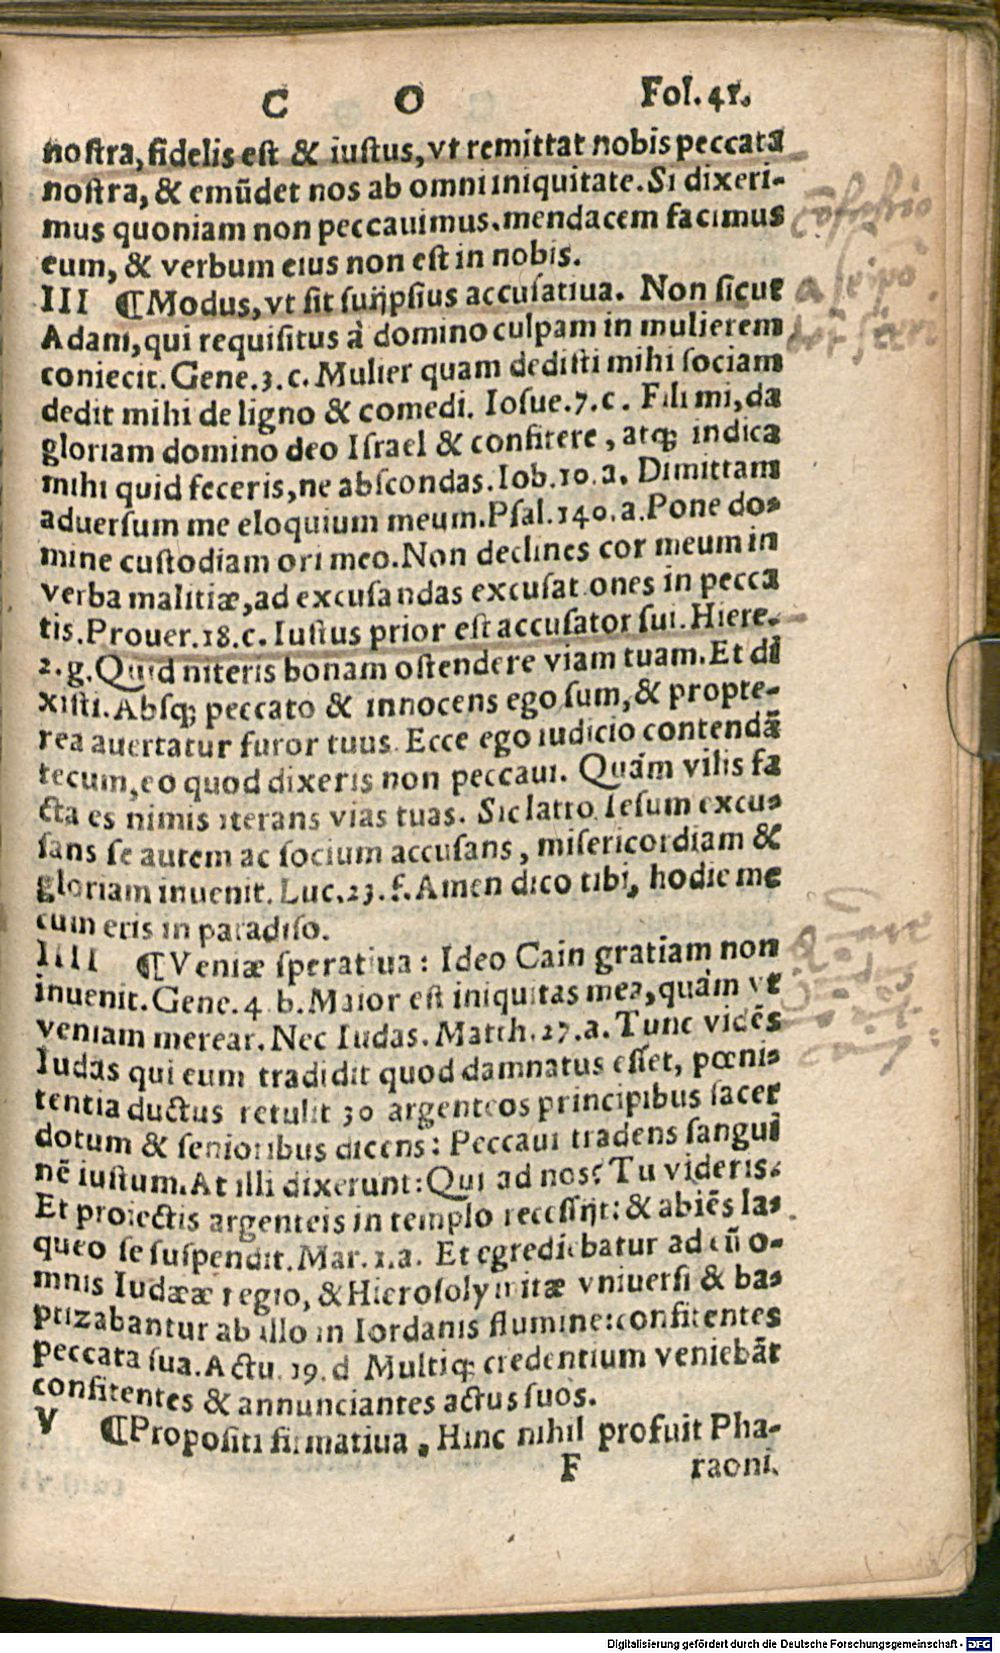 C O Fol. 41.
noſtra, fidelis eſt & iuſtus, vt remittat nobis peccata
noſtra, & emūdet nos ab omni iniquitate. Si dixeri-
mus quoniam non peccauimus. mendacem facimus
eum, & verbum eius non eſt in nobis.
III ¶Modus, vt ſit ſuijpſius accuſatiua. Non ſicut
Adam, qui requiſitus à domino culpam in mulierem
coniecit. Gene. 3. c. Mulier quam dediſti mihi ſociam
dedit mihi de ligno & comedi. Ioſue. 7. c. Fili mi, da
gloriam domino deo Iſrael & confitere, atq; indica
mihi quid feceris, ne abſcondas. Iob. 10. a. Dimittam
aduerſum me eloquium meum. Pſal. 140. a. Pone do-
mine cuſtodiam ori meo. Non declines cor meum in
verba malitiæ, ad excuſandas excuſationes in pecca
tis. Prouer. 18. c. Iuſtus prior eſt accuſator ſui. Hiere.
2. g. Quid niteris bonam oſtendere viam tuam. Et di
xiſti. Abſq; peccato & innocens ego ſum, & propte-
rea auertatur furor tuus. Ecce ego iudicio contendā
tecum, eo quod dixeris non peccaui. Quàm vilis fa
cta es nimis iterans vias tuas. Sic latro Ieſum excu-
ſans ſe autem ac ſocium accuſans, miſericordiam &
gloriam inuenit. Luc. 23. f. Amen dico tibi, hodie me
cum eris in paradiſo.
IIII ¶Veniæ ſperatiua: Ideo Cain gratiam non
inuenit. Gene. 4. b. Maior eſt iniquitas mea, quàm vt
veniam merear. Nec Iudas. Matth. 27. a. Tunc vidēs
Iudas qui eum tradidit quod damnatus eſſet, pœni-
tentia ductus retulit 30 argenteos principibus ſacer
dotum & ſenioribus dicens: Peccaui tradens ſangui
nē iuſtum. At illi dixerunt: Qui ad nos? Tu videris.
Et proiectis argenteis in templo receſſijt: & abiēs la-
queo ſe ſuſpendit. Mar. 1. a. Et egrediebatur ad eū o-
mnis Iudææ regio, & Hieroſolymitæ vniuerſi & ba-
ptizabantur ab illo in Iordanis flumine: confitentes
peccata ſua. Actu. 19. d Multiq; credentium veniebāt
confitentes & annunciantes actus ſuos.
V ¶Propoſiti firmatiua. Hinc nihil profuit Pha-
F raoni.
Digitalisierung gefördert durch die Deutsche Forschungsgemeinschaft - DFG